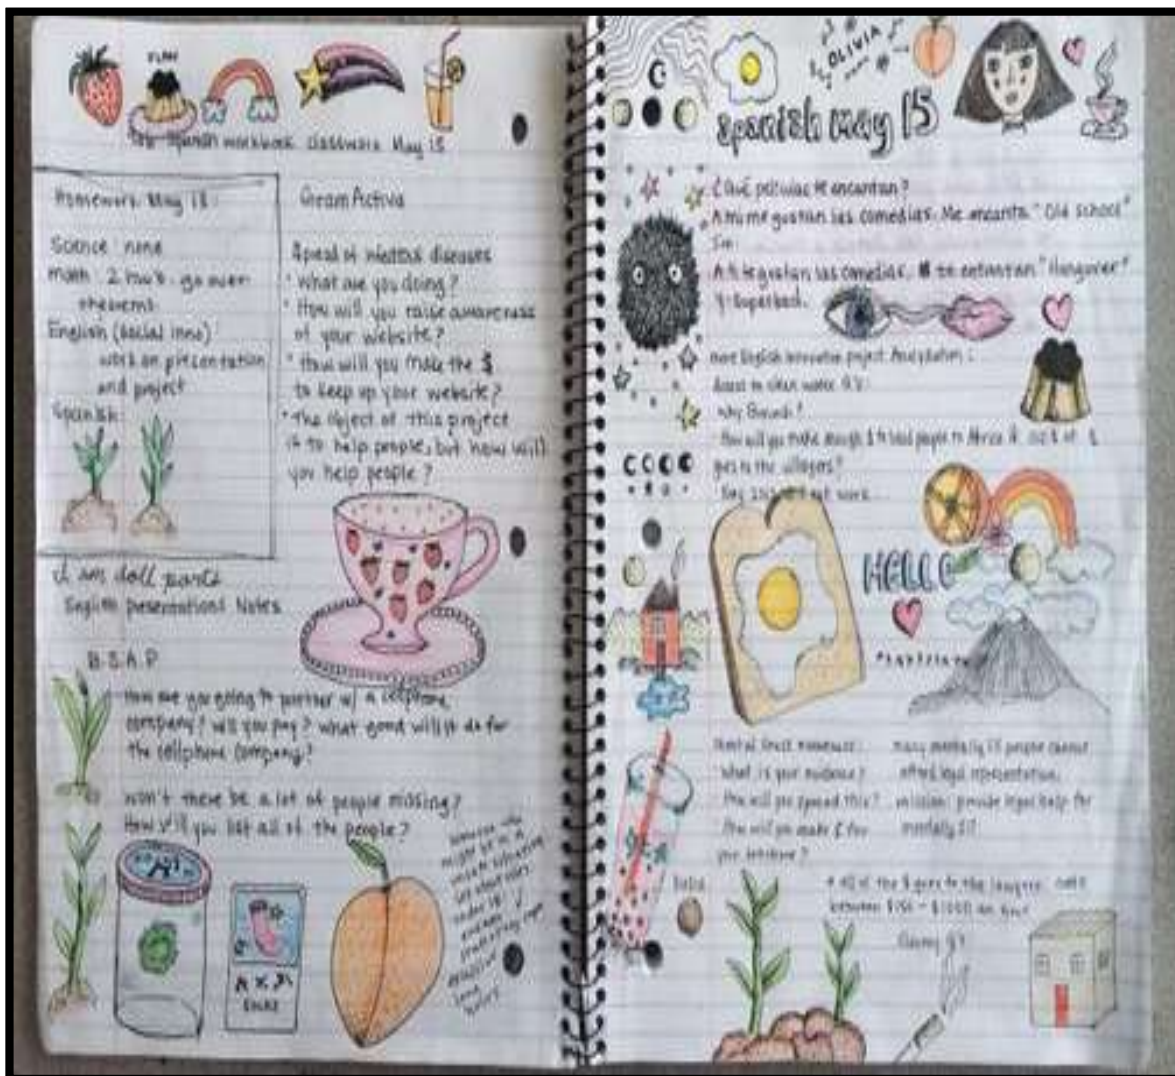 FLAN
Spanish workbook classwork May 15
Homework May 15:
Science: none
math: 2 rows. go over
theorems
English (social inno)
work on presentation
and project
Spanish:
GramActiva
Spread of diseases
• What are you doing?
• How will you raise awareness
of your website?
• How will you make the $
to keep up your website?
• The object of this project
is to help people, but how will
you help people?
I am doll parts
English Presentations Notes
B.S.A.P
How are you going to partner w/ a cellphone
company? will you pay? what good will it do for
the cellphone company?
won't there be a lot of people missing?
How will you list all of the people?
someone who
might be in a
situation
long
OLIVIA
Spanish May 15
¿Qué películas te encantan?
A mi me gustan las comedias. Me encanta "Old School"
A ti te gustan las comedias. te encantan "Hangover"
y Superbad.
more English Innovation project :
Access to clean water
why Burundi?
How will you make enough $ to send people to Africa
goes to the villagers?
not work
HELLO
What is your evidence?
How will you spread this?
How will you make $ for
your ?
many mentally ill people cannot
afford legal representation.
mission: provide legal help for
mentally ill
All of the $ goes to the lawyers
between $150 - $1000 an hour